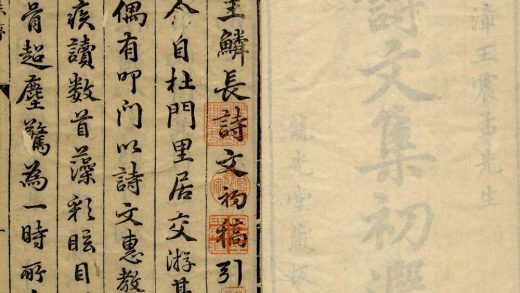 漳王震爲先生
詩文集初選
龍光堂藏板
王鱗長詩文初稿引
余自杜門里居交游甚
偶有叩門以詩文惠教
疾讀数首藻彩眩目
骨超塵驚為一時所